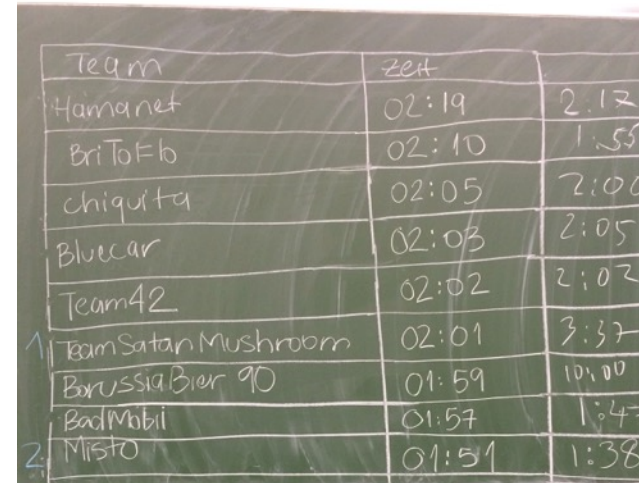 Team Zeit
Hamanet 02:19 2:17
BriToFlo 02:10 1:55
chiquita 02:05 2:00
Bluecar 02:03 2:05
Team42 02:02 2:02
1. Team Satan Mushroom 02:01 3:37
Borussia Bier 90 01:59 10:00
BadMobil 01:57 1:47
2. Misto 01:51 1:38